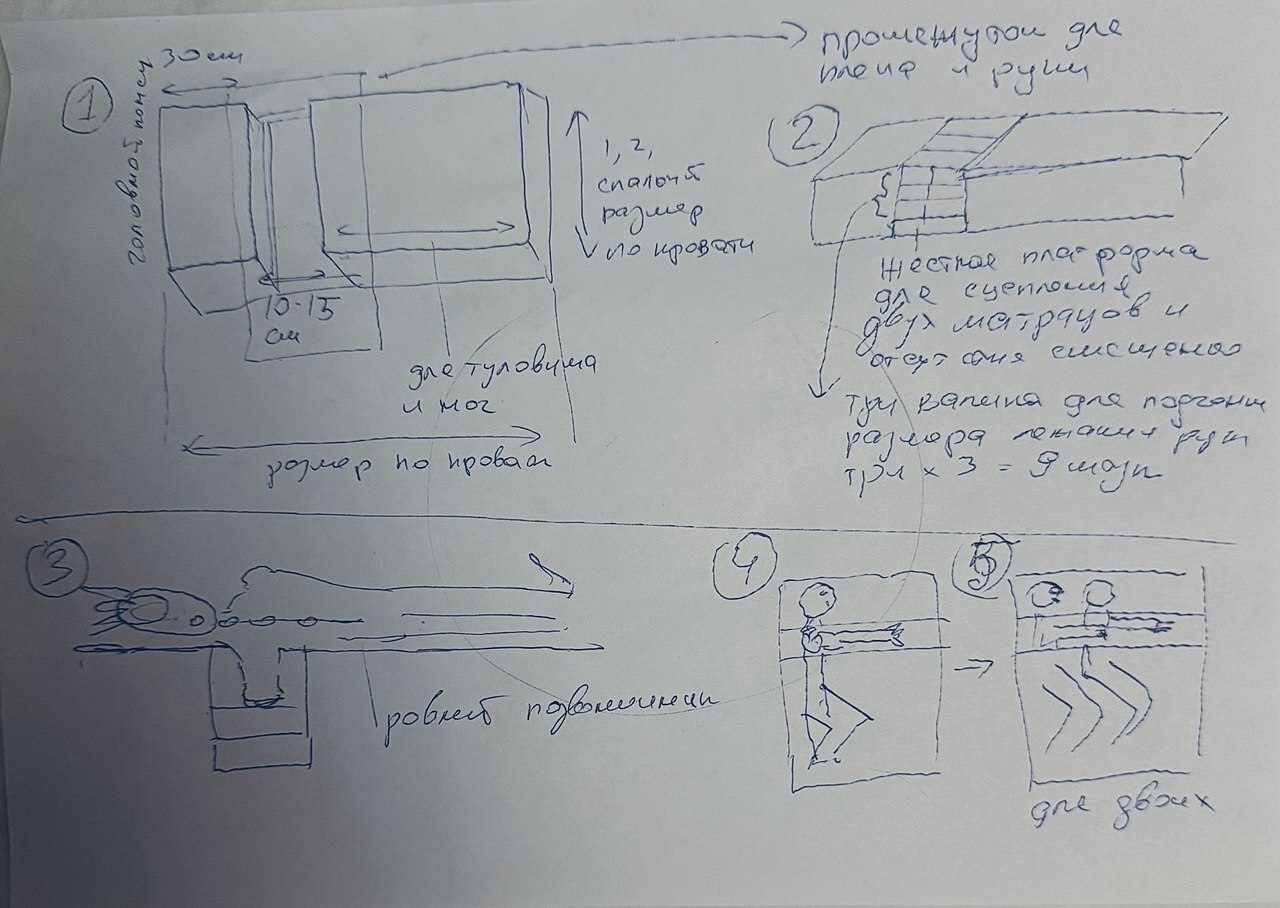 1
30 см
головной
промежуток для
плеча и руки
1, 2,
спальн
размер
по кровати
10-15
см
для туловища
и ног
размер по кроват
2
жесткая платформа
для сцепления
двух матрацов и
смещения
три валика для подгонки
размера лежания руки
три x 3 = 9 штук
3
ровный позвоночник
4
5
для двоих